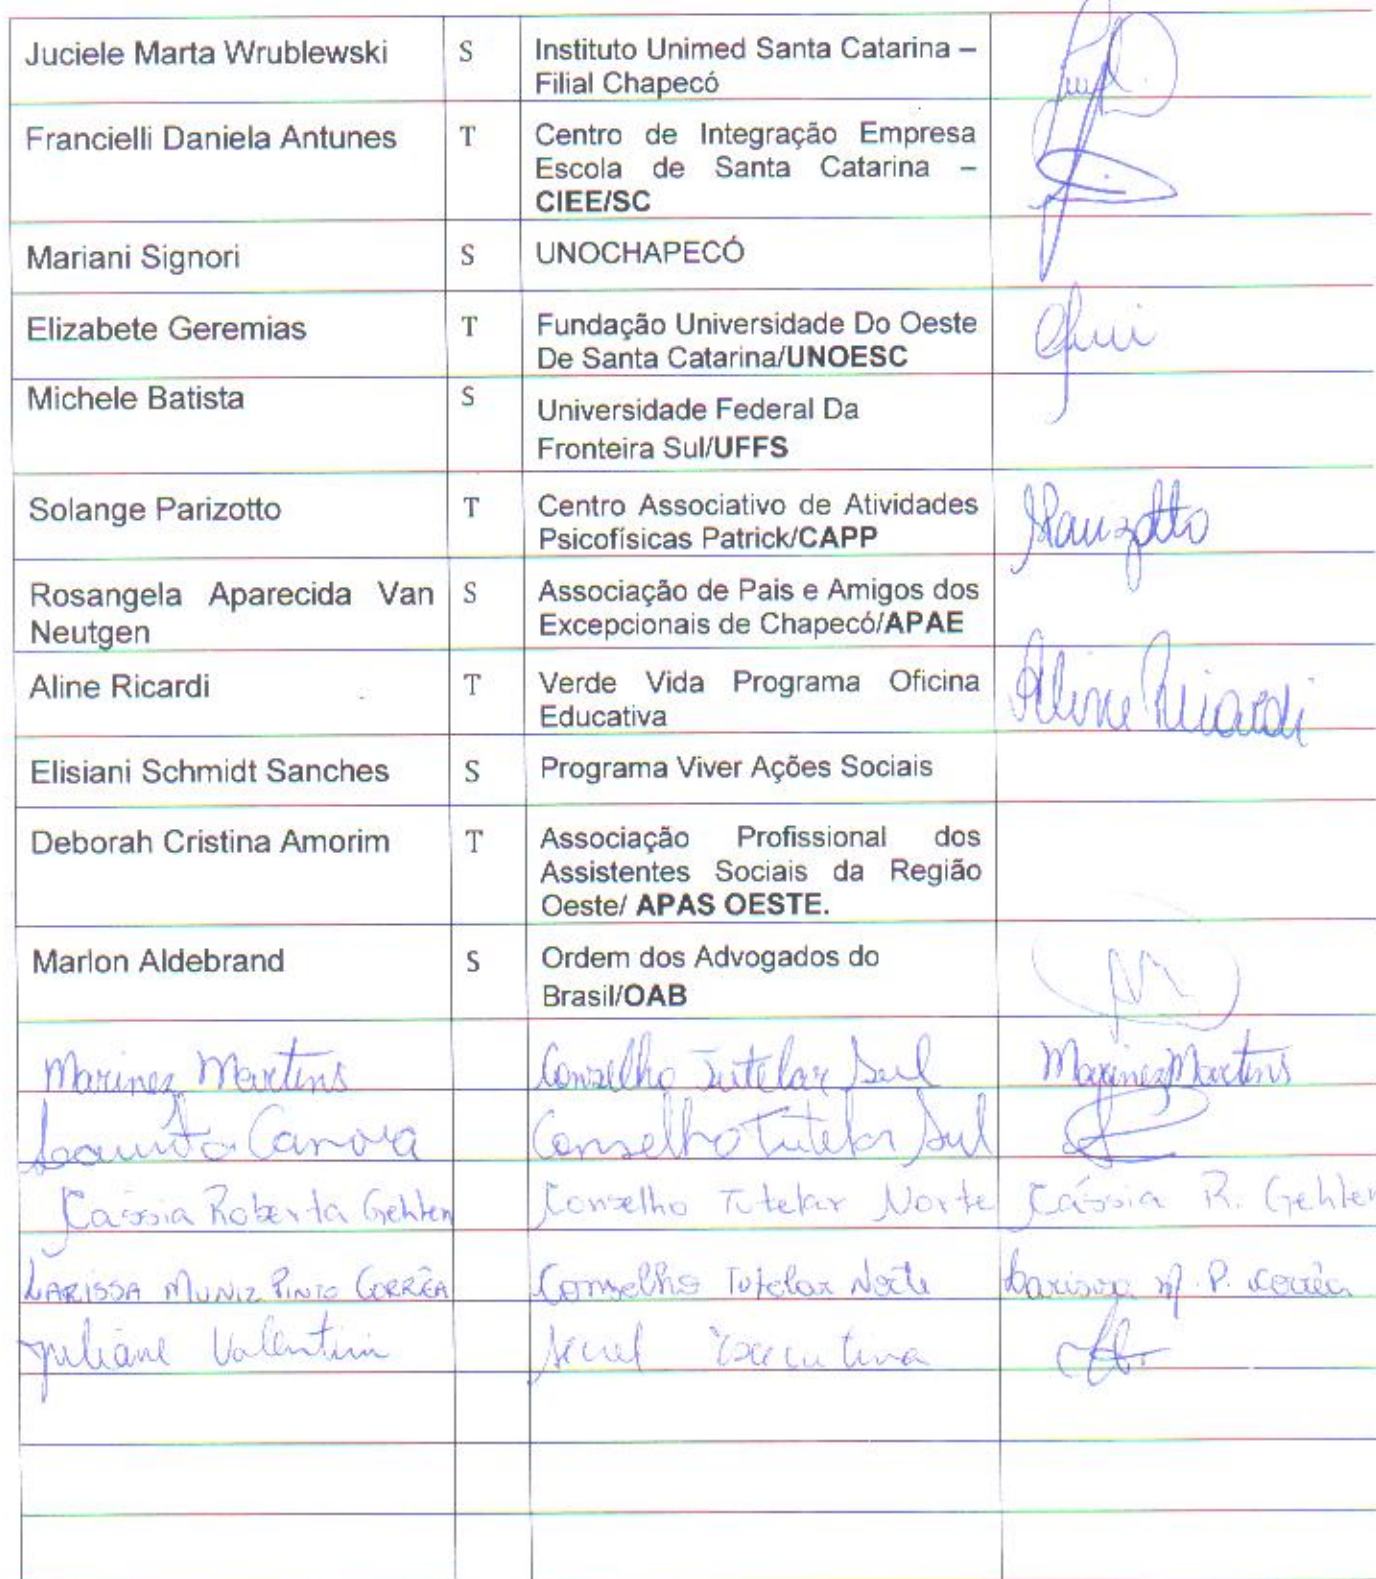 Juciele Marta Wrublewski S Instituto Unimed Santa Catarina –
Filial Chapecó
Francielli Daniela Antunes T Centro de Integração Empresa
Escola de Santa Catarina –
CIEE/SC
Mariani Signori S UNOCHAPECÓ
Elizabete Geremias T Fundação Universidade Do Oeste
De Santa Catarina/UNOESC
Michele Batista S Universidade Federal Da
Fronteira Sul/UFFS
Solange Parizotto T Centro Associativo de Atividades
Psicofísicas Patrick/CAPP
Rosangela Aparecida Van S Associação de Pais e Amigos dos
Neutgen Excepcionais de Chapecó/APAE
Aline Ricardi T Verde Vida Programa Oficina Aline Ricardi
Educativa
Elisiani Schmidt Sanches S Programa Viver Ações Sociais
Deborah Cristina Amorim T Associação Profissional dos
Assistentes Sociais da Região
Oeste/ APAS OESTE.
Marlon Aldebrand S Ordem dos Advogados do
Brasil/OAB
Marinez Martins Conselho Tutelar Sul Marinez Martins
Conselho Tutelar Sul
Cássia Roberta Gehlen Conselho Tutelar Norte Cássia R. Gehlen
LARISSA MUNIZ PINTO CORRÊA Conselho Tutelar Norte Larissa M. P. Corrêa
Juliane Valentini Executiva